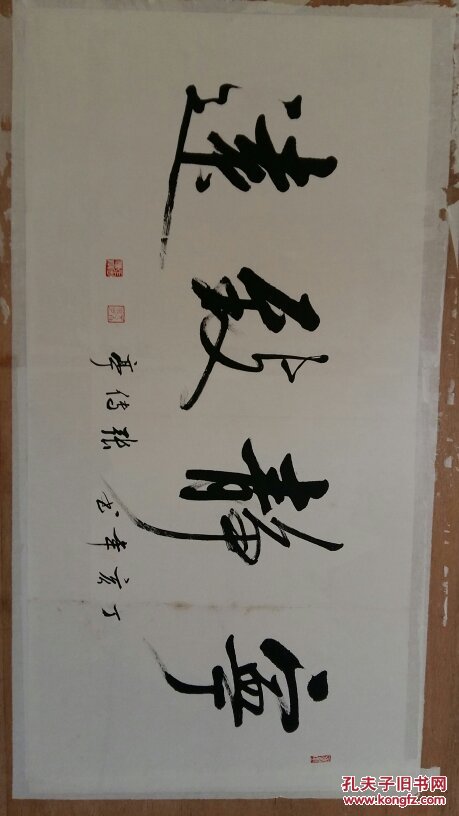 寧静致遠
丁亥年书 张传亭
孔夫子旧书网
www.kongfz.com